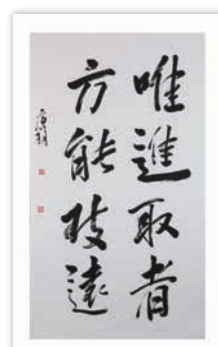 唯進取者
方能致遠